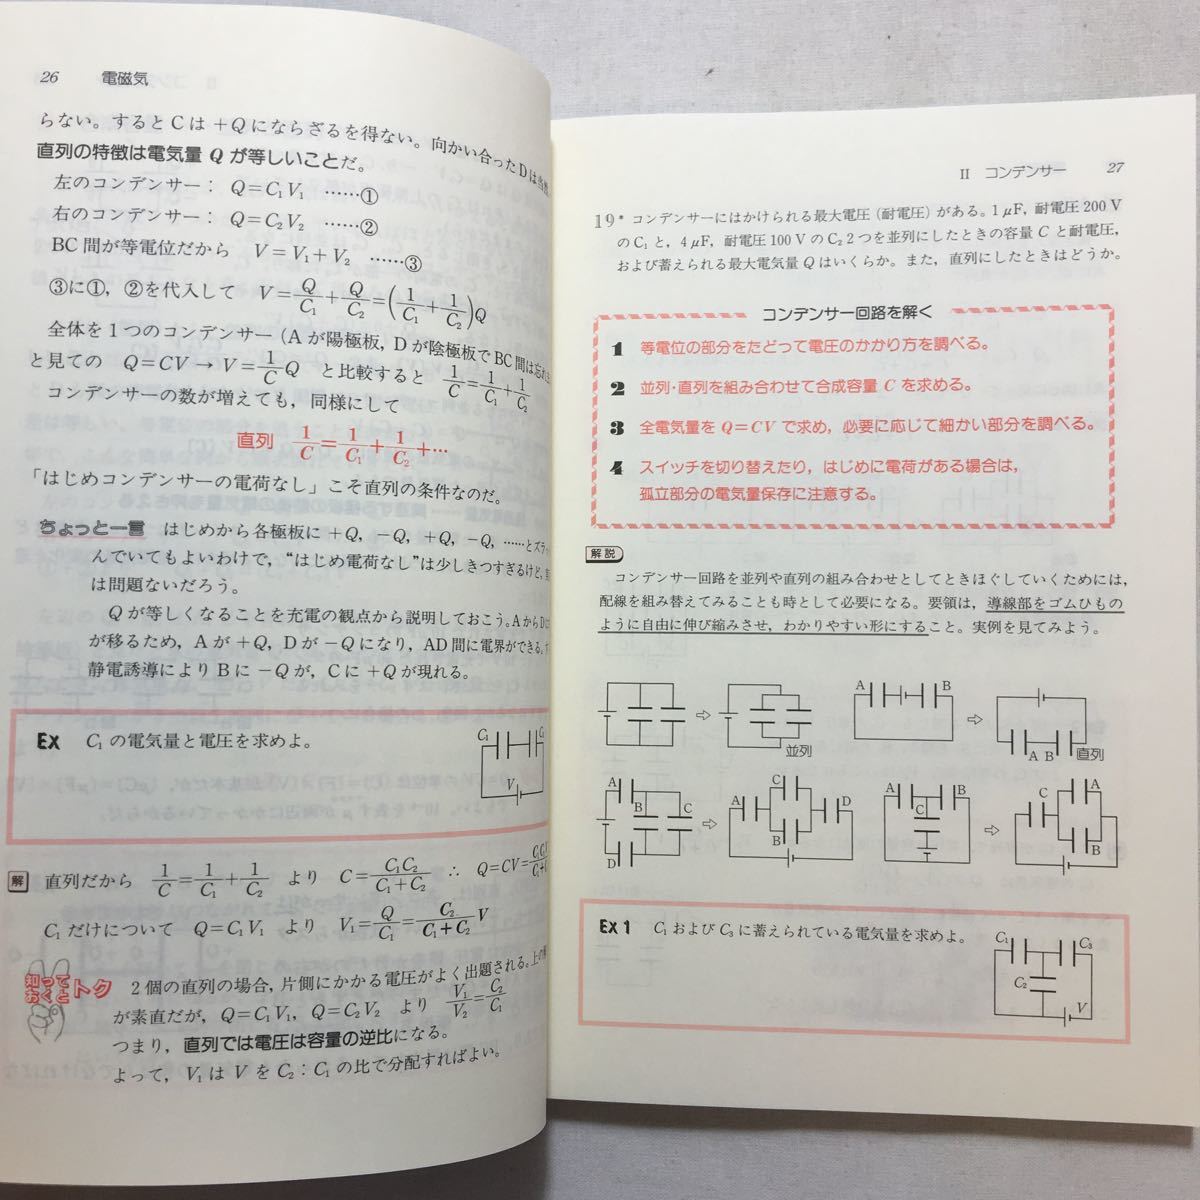 26　電磁気
らない。するとCは+Qにならざるを得ない。向かい合ったDは当然
直列の特徴は電気量 Q が等しいことだ。
左のコンデンサー： Q=C₁V₁ ……①
右のコンデンサー： Q=C₂V₂ ……②
BC間が等電位だから V=V₁+V₂ ……③
③に①，②を代入して V=Q/C₁+Q/C₂=(1/C₁+1/C₂)Q
全体を1つのコンデンサー（Aが陽極板，Dが陰極板でBC間は忘れ
と見ての Q=CV→V=1/C Q と比較すると 1/C=1/C₁+1/C₂
コンデンサーの数が増えても，同様にして
直列 1/C=1/C₁+1/C₂+…
「はじめコンデンサーの電荷なし」こそ直列の条件なのだ。
ちょっと一言 はじめから各極板に +Q，−Q，+Q，−Q，……とズラ
んでいてもよいわけで，“はじめ電荷なし”は少しきつすぎるけど，
は問題ないだろう。
Qが等しくなることを充電の観点から説明しておこう。AからDに
が移るため，Aが+Q，Dが−Qになり，AD間に電界ができる。
静電誘導によりBに−Qが，Cに+Qが現れる。
Ex C₁の電気量と電圧を求めよ。
C₁
V
解 直列だから 1/C=1/C₁+1/C₂ より C=C₁C₂/C₁+C₂ ∴ Q=CV=
C₁だけについて Q=C₁V₁ より V₁=Q/C₁=C₂/C₁+C₂ V
知っておくとトク 2個の直列の場合，片側にかかる電圧がよく出題される。上の
が素直だが，Q=C₁V₁，Q=C₂V₂ より V₁/V₂=C₂/C₁
つまり，直列では電圧は容量の逆比になる。
よって，V₁はVをC₂：C₁の比で分配すればよい。
Ⅱ　コンデンサー　27
19* コンデンサーにはかけられる最大電圧（耐電圧）がある。1μF，耐電圧200V
のC₁と，4μF，耐電圧100VのC₂ 2つを並列にしたときの容量Cと耐電圧，
および蓄えられる最大電気量Qはいくらか。また，直列にしたときはどうか。
コンデンサー回路を解く
1 等電位の部分をたどって電圧のかかり方を調べる。
2 並列・直列を組み合わせて合成容量Cを求める。
3 全電気量をQ=CVで求め，必要に応じて細かい部分を調べる。
4 スイッチを切り替えたり，はじめに電荷がある場合は，
孤立部分の電気量保存に注意する。
解説
コンデンサー回路を並列や直列の組み合わせとしてときほぐしていくためには，
配線を組み替えてみることも時として必要になる。要領は，導線部をゴムひもの
ように自由に伸び縮みさせ，わかりやすい形にすること。実例を見てみよう。
⇨ 並列 A B ⇨ A B 直列
A B C D ⇨ A B C B D A B C ⇨ A B C
Ex 1 C₁およびC₃に蓄えられている電気量を求めよ。
C₁ C₃
C₂
V